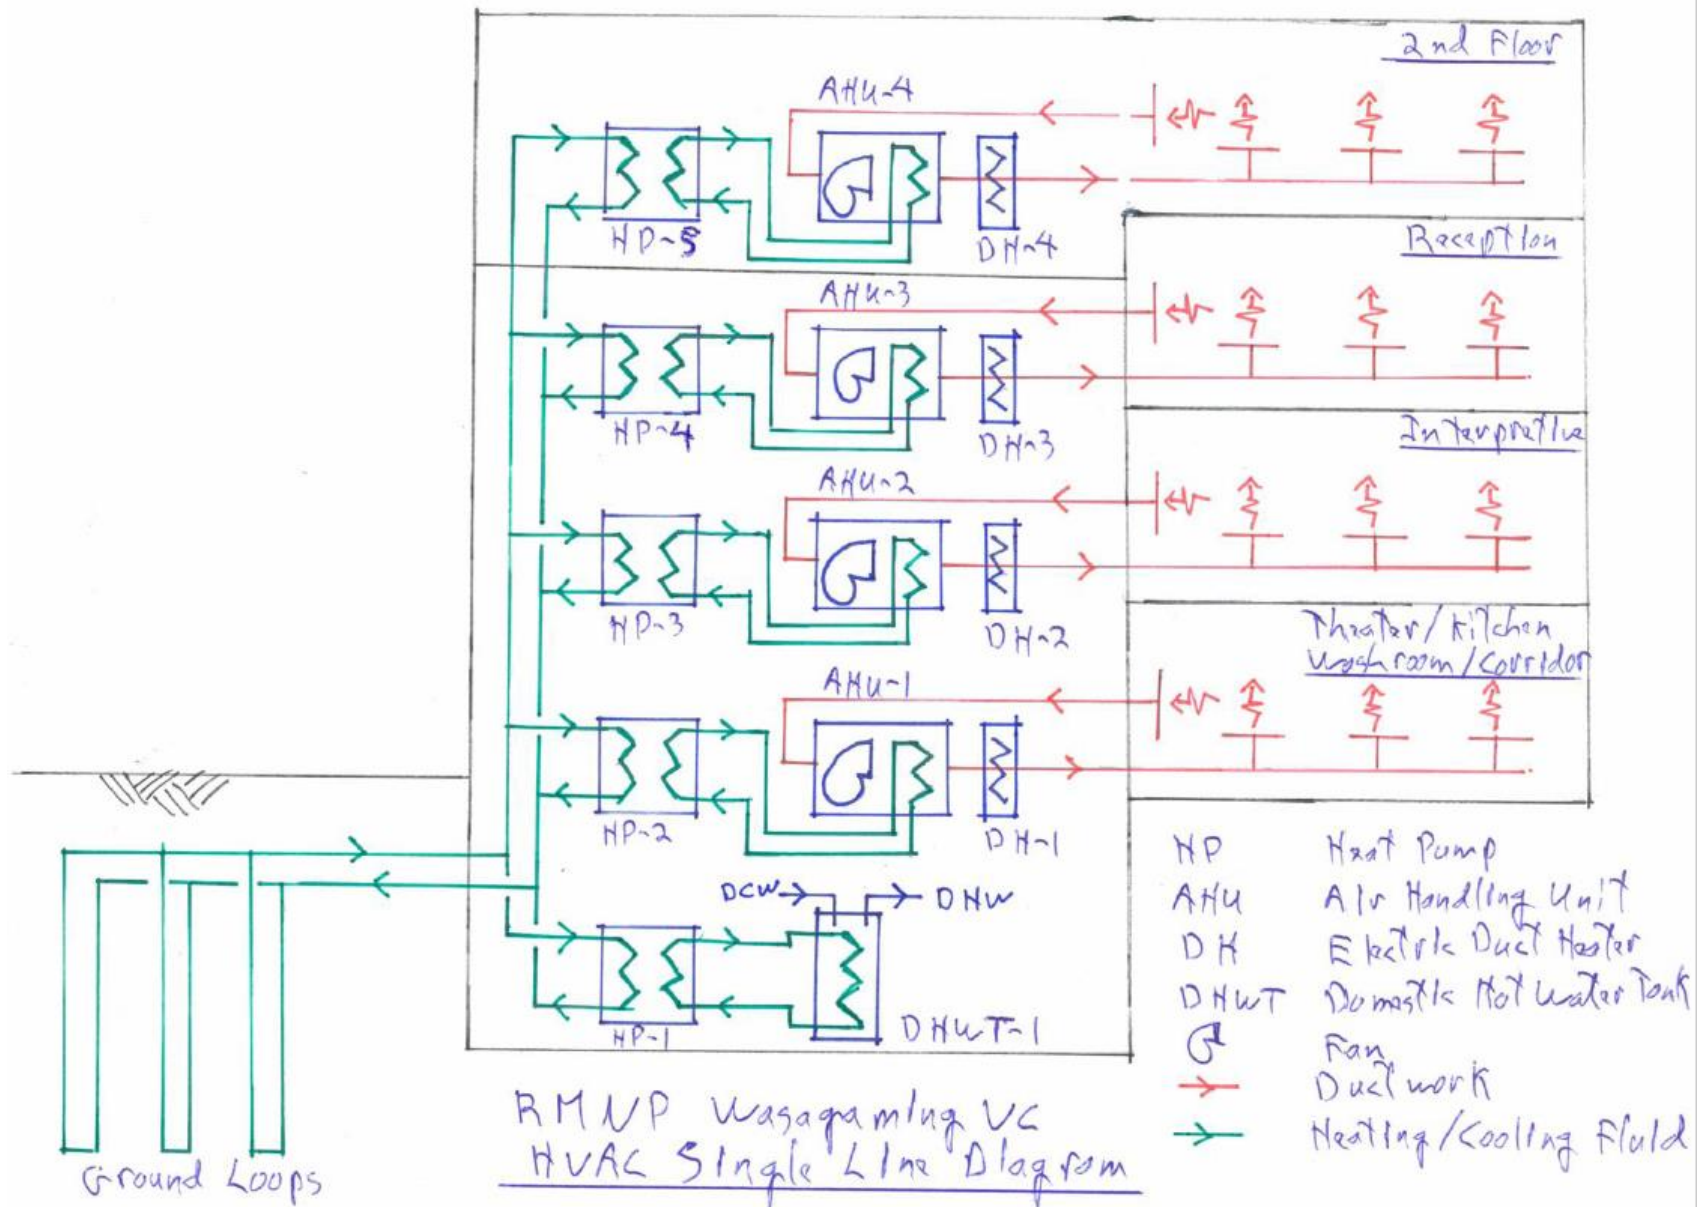 2nd Floor
AHU-4
HP-5
DH-4
Reception
AHU-3
HP-4
DH-3
Interpretive
AHU-2
HP-3
DH-2
Theater/Kitchen
Washroom/Corridor
AHU-1
HP-2
DH-1
DCW
DHW
HP-1
DHWT-1
HP Heat Pump
AHU Air Handling Unit
DH Electric Duct Heater
DHWT Domestic Hot Water Tank
Fan
Ductwork
Heating/Cooling Fluid
Ground Loops
RMNP Wasagaming VC
HVAC Single Line Diagram